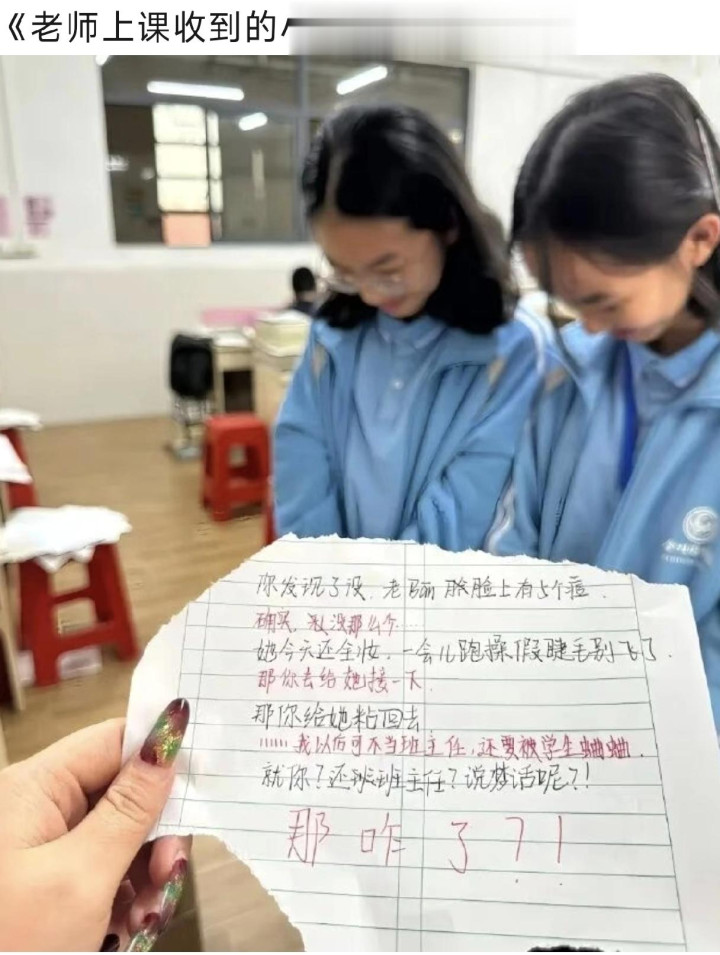 《老师上课收到的
你发现了没，老师脸上有5个痘．
确实，没那么个……
她今天还全妆，一会儿跑操假睫毛别飞了．
那你去给她接一下．
那你给她粘回去
……我以后可不当班主任，还要被学生蛐蛐．
就你？还班主任？说梦话呢？！
那咋了？！